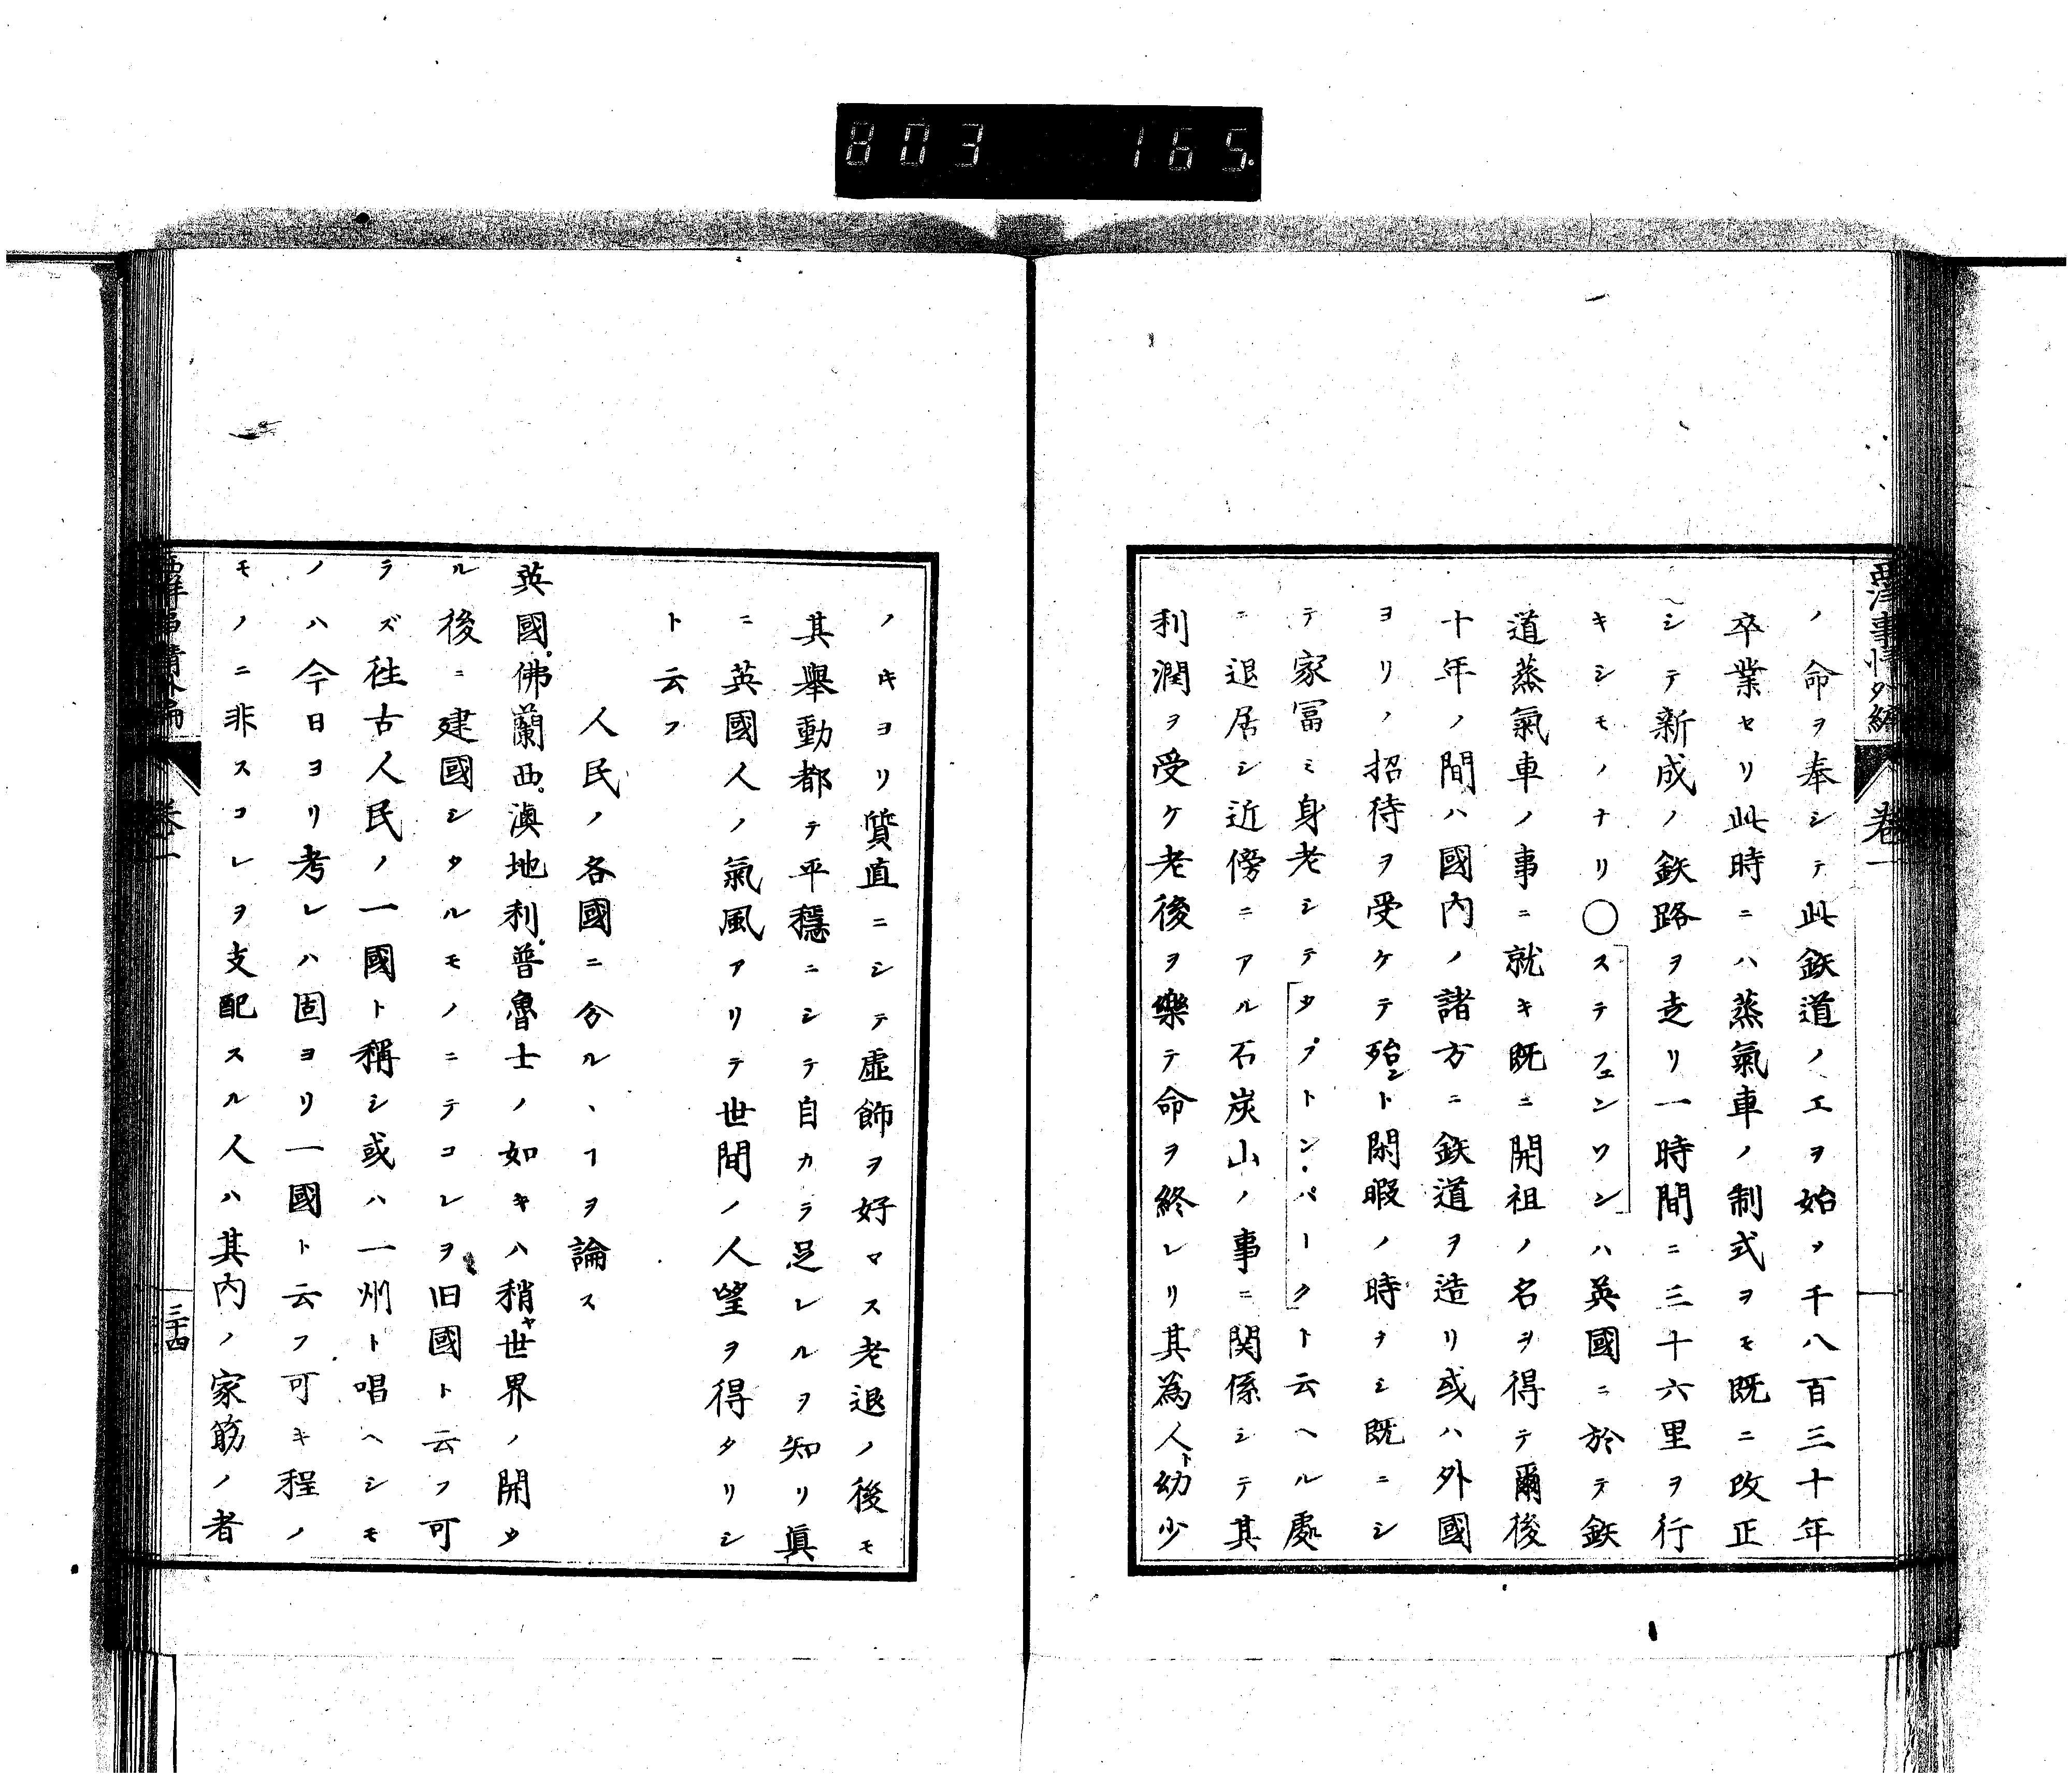 803 165.
西洋事情外編 卷一
ノ命ヲ奉シテ此鉄道ノ工ヲ始メ千八百三十年
卒業セリ此時ニハ蒸氣車ノ制式ヲモ既ニ改正
シテ新成ノ鉄路ヲ走リ一時間ニ三十六里ヲ行
キシモノナリ○ステフェンソンハ英國ニ於テ鉄
道蒸氣車ノ事ニ就キ既ニ開祖ノ名ヲ得テ爾後
十年ノ間ハ國内ノ諸方ニ鉄道ヲ造リ或ハ外國
ヨリノ招待ヲ受ケテ殆ント閑暇ノ時ナシ既ニシ
テ家冨ミ身老シテタプトン・パークト云ヘル處
ニ退居シ近傍ニアル石炭山ノ事ニ関係シテ其
利潤ヲ受ケ老後ヲ樂テ命ヲ終レリ其為人ト幼少
ノ𪜈ヨリ質直ニシテ虚飾ヲ好マス老退ノ後モ
其舉動都テ平穩ニシテ自カラ足レルヲ知リ眞
ニ英國人ノ氣風アリテ世間ノ人望ヲ得タリシ
ト云フ
人民ノ各國ニ分ルヽヿヲ論ス
英國。佛蘭西。澳地利。普魯士ノ如キハ稍ヤ世界ノ開ケ
ル後ニ建國シタルモノニテコレヲ旧國ト云フ可
ラズ徃古人民ノ一國ト稱シ或ハ一州ト唱ヘシモ
ノハ今日ヨリ考レハ固ヨリ一國ト云フ可キ程ノ
モノニ非スコレヲ支配スル人ハ其内ノ家筋ノ者
西洋事情外編 卷一 三十四